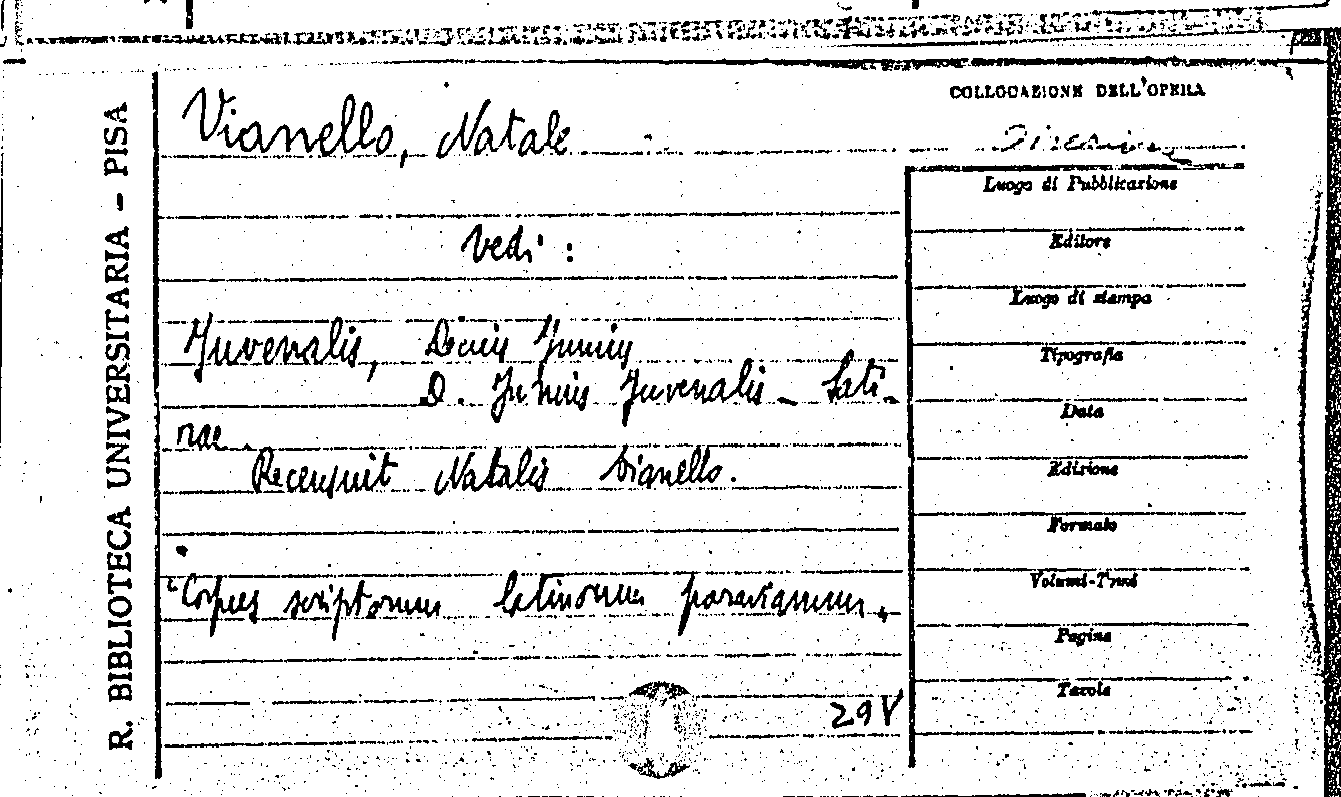 R. BIBLIOTECA UNIVERSITARIA - PISA
Vianello, Natale
vedi :
Juvenalis, Decius Junius
D. Junius Juvenalis - Sati-
rae.
Recensuit Natalis Vianello.
"Corpus scriptorum latinorum paravianum.
29V
COLLOCAZIONE DELL'OPERA
Luogo di Pubblicazione
Editore
Luogo di stampa
Tipografia
Data
Edizione
Formato
Volumi-Tomi
Pagine
Tavole